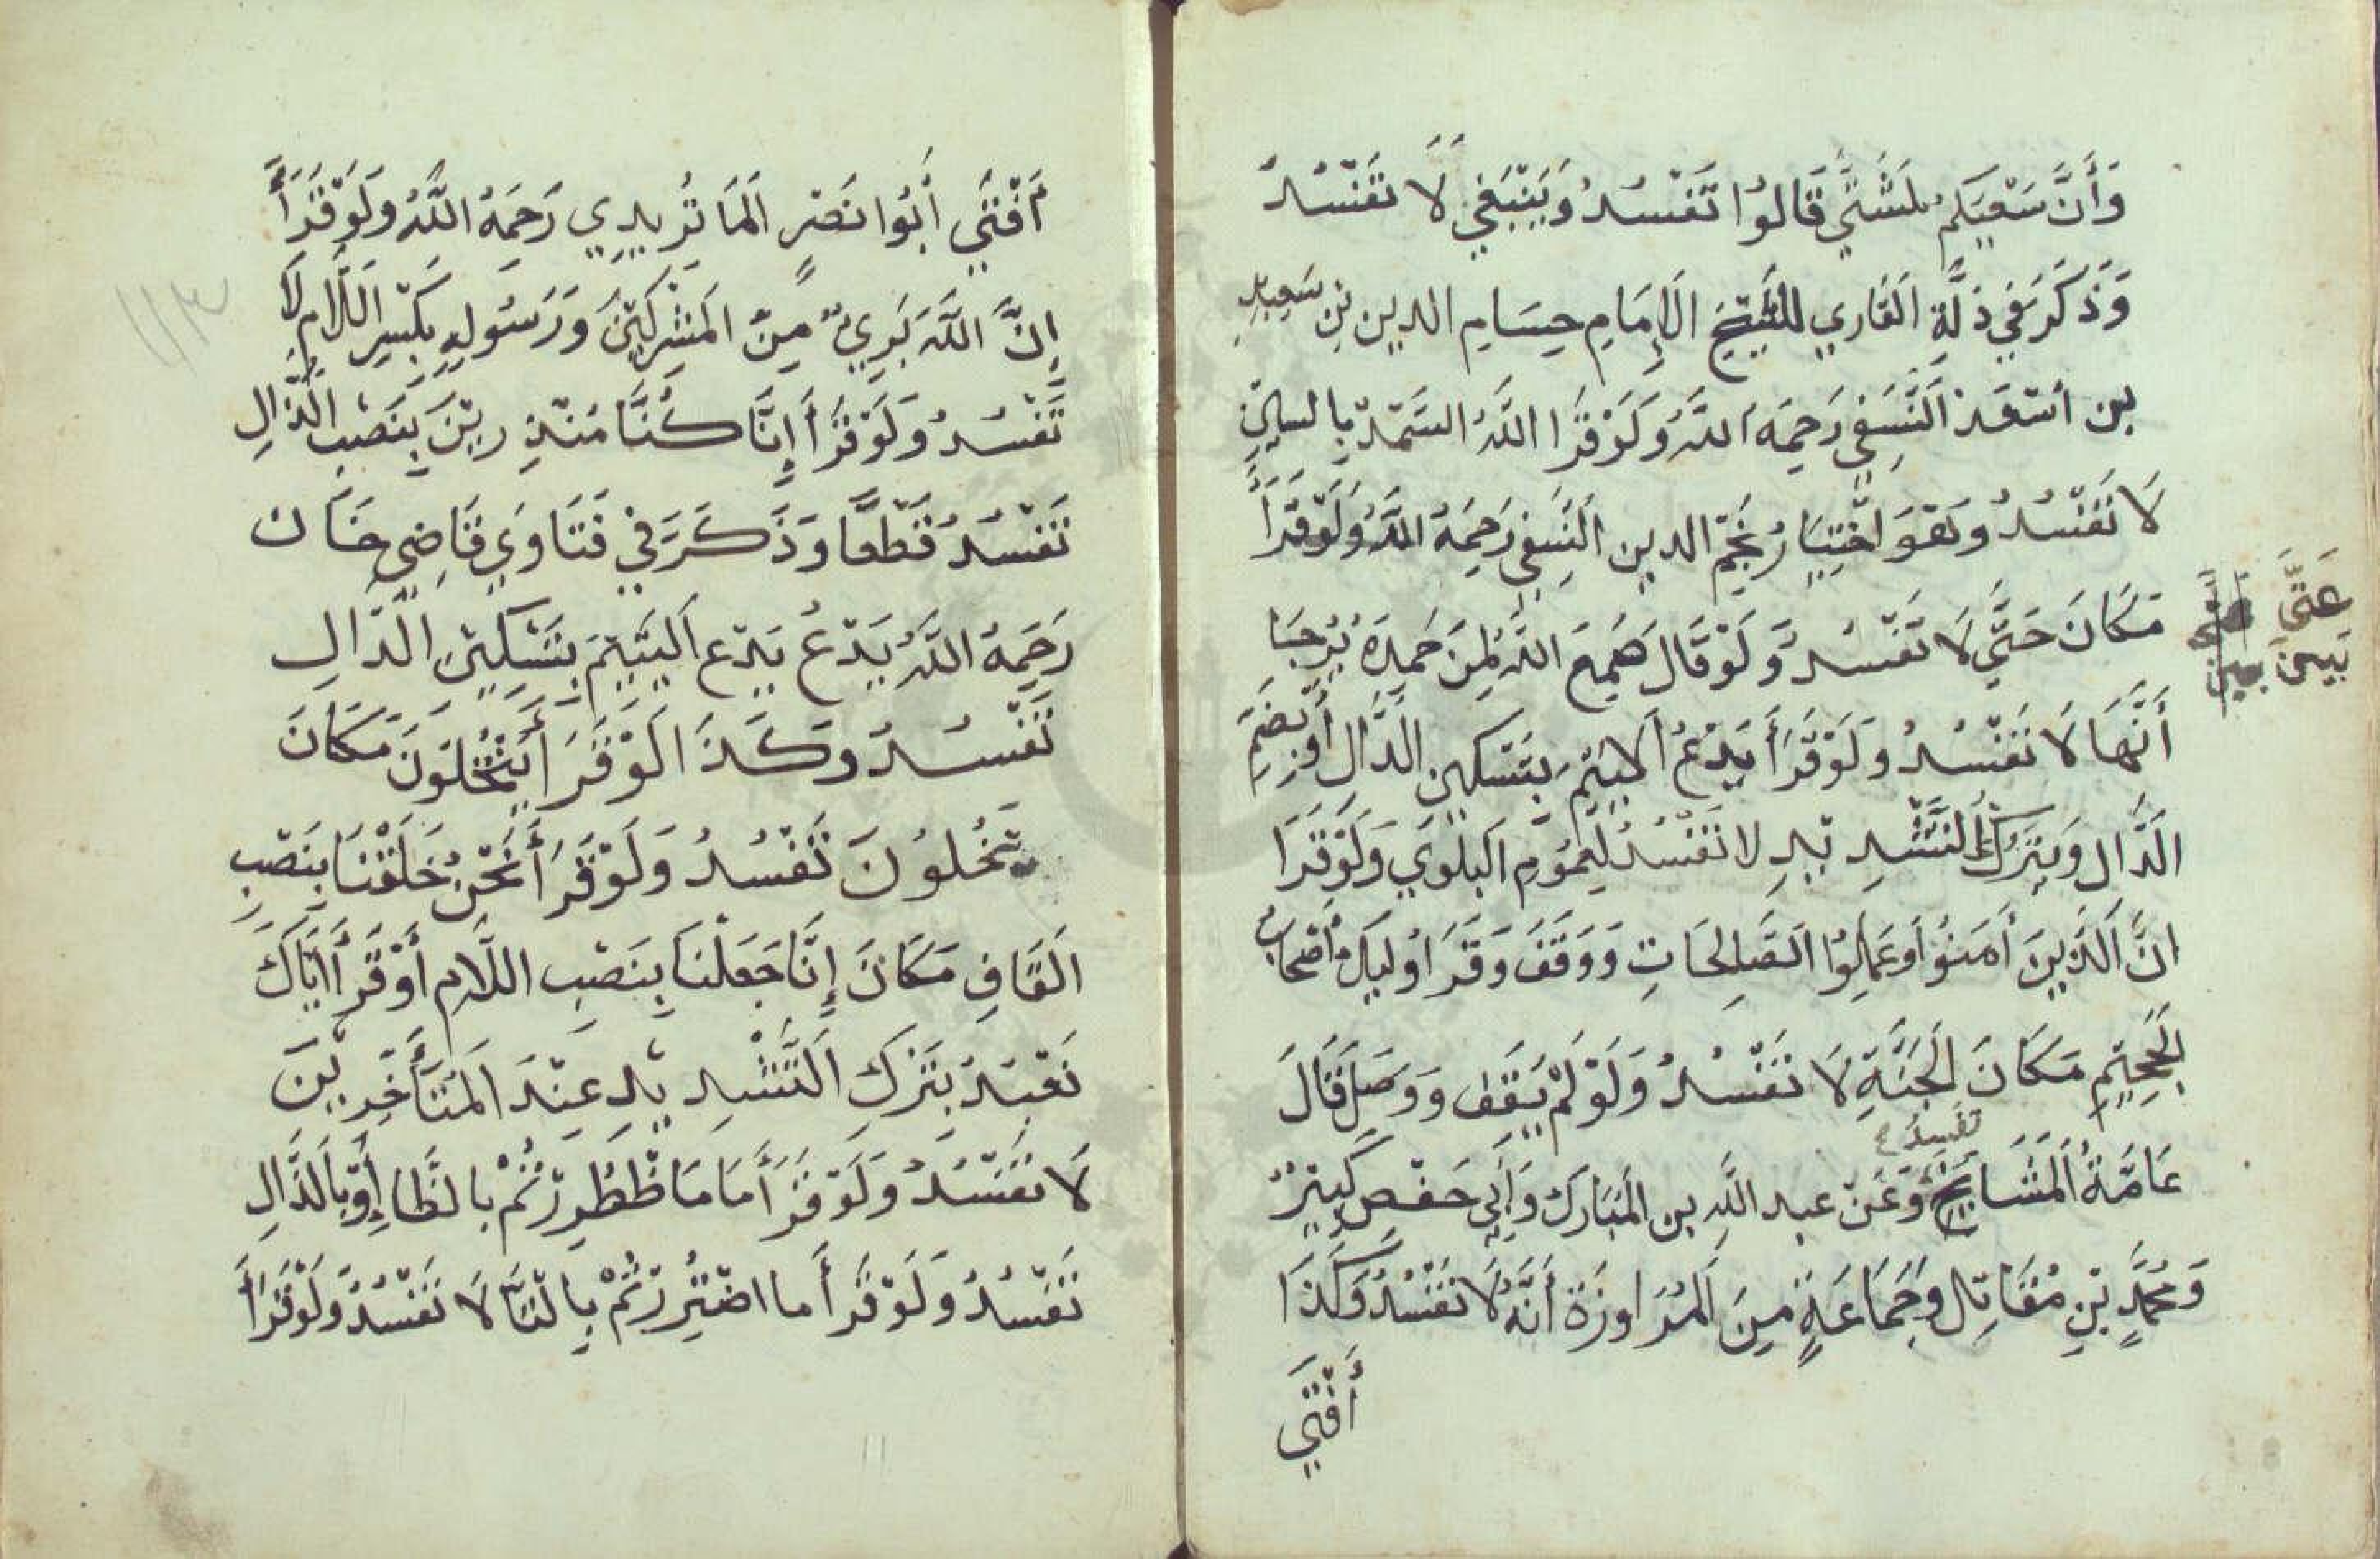 وَأَنَّ سَعْيَكُمْ لَشَتَّي قَالُوا تَفْسُدُ وَيَنْبَغِي لَا تَفْسُدُ
وَذَكَرَ فِي ذَلَّةِ الْقَارِي لِلشَّيْخِ الْإِمَامِ حِسَامِ الدين بْنِ سَعِيدِ
بن اسْعَد النَّسَفِي رَحِمَهُ اللَّهُ وَلَوْ قَرَا اللَّهُ السَّمَدُ بِالسِينِ
لَا تَفْسُدُ وَهُوَ اخْتِيَارُ نَجْمِ الدين النَّسَفِي رَحِمَهُ اللَّهُ وَلَوْ قَرَأَ
عَتَّى
مَكَانَ حَتَّي لَا تَفْسُدُ وَلَوْ قَالَ هَمِعَ اللَّهُ لِمَنْ حَمِدَهُ يُرْجَا
بَيِينَ
أَنَّهَا لَا تَفْسُدُ وَلَوْ قَرَأَ يَدْعُ الْيَتِيْمَ بِتَسْكِينِ الدَّالِ أَوْ بِضَمِّ
الدَّالِ وَبِتَرْكِ التَّشْدِيدِ لَا تَفْسُدُ لِعُمُومِ الْبَلْوَي وَلَوْ قَرَا
انَّ الَّذِينَ أَمَنُوا وَعَمِلُوا الصَّالِحَاتِ وَوَقَفَ وَقَرَا اوُلَيِكَ أَصْحَابُ
الْجَحِيْمِ مَكَانَ الْجَنَّةِ لَا تَفْسُدُ وَلَوْ لَمْ يَقِفْ وَوَصَلَ قَالَ
تفسد
عَامَّةُ الْمَشَايِخِ وَعَنْ عبد اللَّهِ بن الْمُبَارَكْ وَأَبِي حَفْصٍ كَبِيْرٍ
وَمُحَمَّدٍ بْنِ مُقَاتِلٍ وَجَمَاعَةٍ مِنَ الْمَرَاوِزَةِ أَنَّهُ لَا تَفْسُدُ وَكَذَا
أَفْتَي
أَفْتَي أَبُوا نَصْرِ الْمَاتُرِيدِي رَحِمَهُ اللَّهُ وَلَوْ قَرَأَ
إِنَّ اللَّهَ بَرِيٌ مِنَ الْمُشْرِكِيْنَ وَرَسُولِهِ بِكَسْرِ اللَّامِ لَا
تَفْسُدُ وَلَوْ قَرَأَ إِنَّا كُنَّا مُنْذِرِيْنَ بِنَصْبِ الذَّالِ
تَفْسُدُ قَطْعًا وَذَكَرَ فِي فَتَاوَي قَاضِي خَان
رَحِمَهُ اللَّهُ يَدْعُ يَدْع الْيَتِيْمَ بِتَسْكِيْنِ الدَّالِ
تَفْسُدُ وَكَذَا لَوْ قَرَأَ مَكَانَ
يَدْخُلوُنَ تَفْسُدُ وَلَوْ قَرَأَ نَحْنُ خَلَقْنَا بِنَصْبِ
الْقَافِ مَكَانَ إِنَّا جَعَلْنَا بِنَصْبِ اللَّامِ أَوْ قَرَأَ ايَاكَ
نَعْبُدُ بِتَرْكِ التَّشْدِيدِ عِنْدَ الْمُتَأَخِّرِيْنَ
لَا تَفْسُدُ وَلَوْ قَرَأَ مَا مَاظْطُرِرْتُمْ بِالظَّاءِ أَوْ بِالذَّالِ
تَفْسُدُ وَلَوْ قَرَأَ ما اضْتُرِرْتُمْ بِالتَّا لَا تَفْسُدُ وَلَوْ قَرَأَ